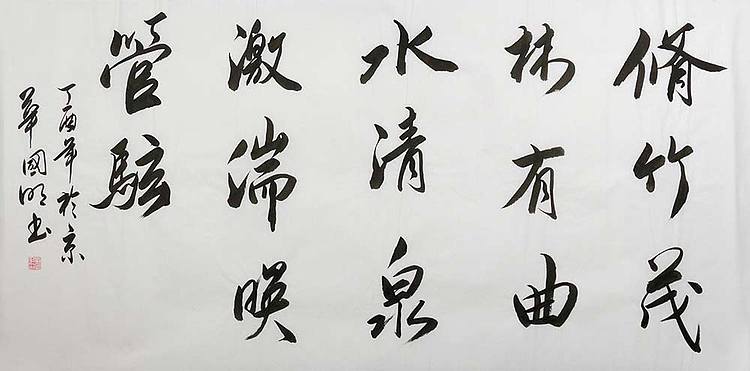 脩竹茂
林有曲
水清泉
激湍暎
管
丁酉年於京
華國明书